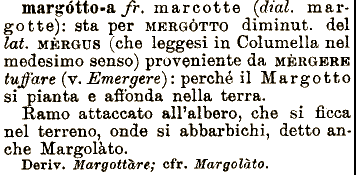 margótto-a fr. marcotte (dial. mar-
gotte): sta per MERGÓTTO diminut. del
lat. MÈRGUS (che leggesi in Columella nel
medesimo senso) proveniente da MÈRGERE
tuffare (v. Emergere): perché il Margotto
si pianta e affonda nella terra.
Ramo attaccato all'albero, che si ficca
nel terreno, onde si abbarbichi, detto an-
che Margolàto.
Deriv. Margottàre; cfr. Margolàto.